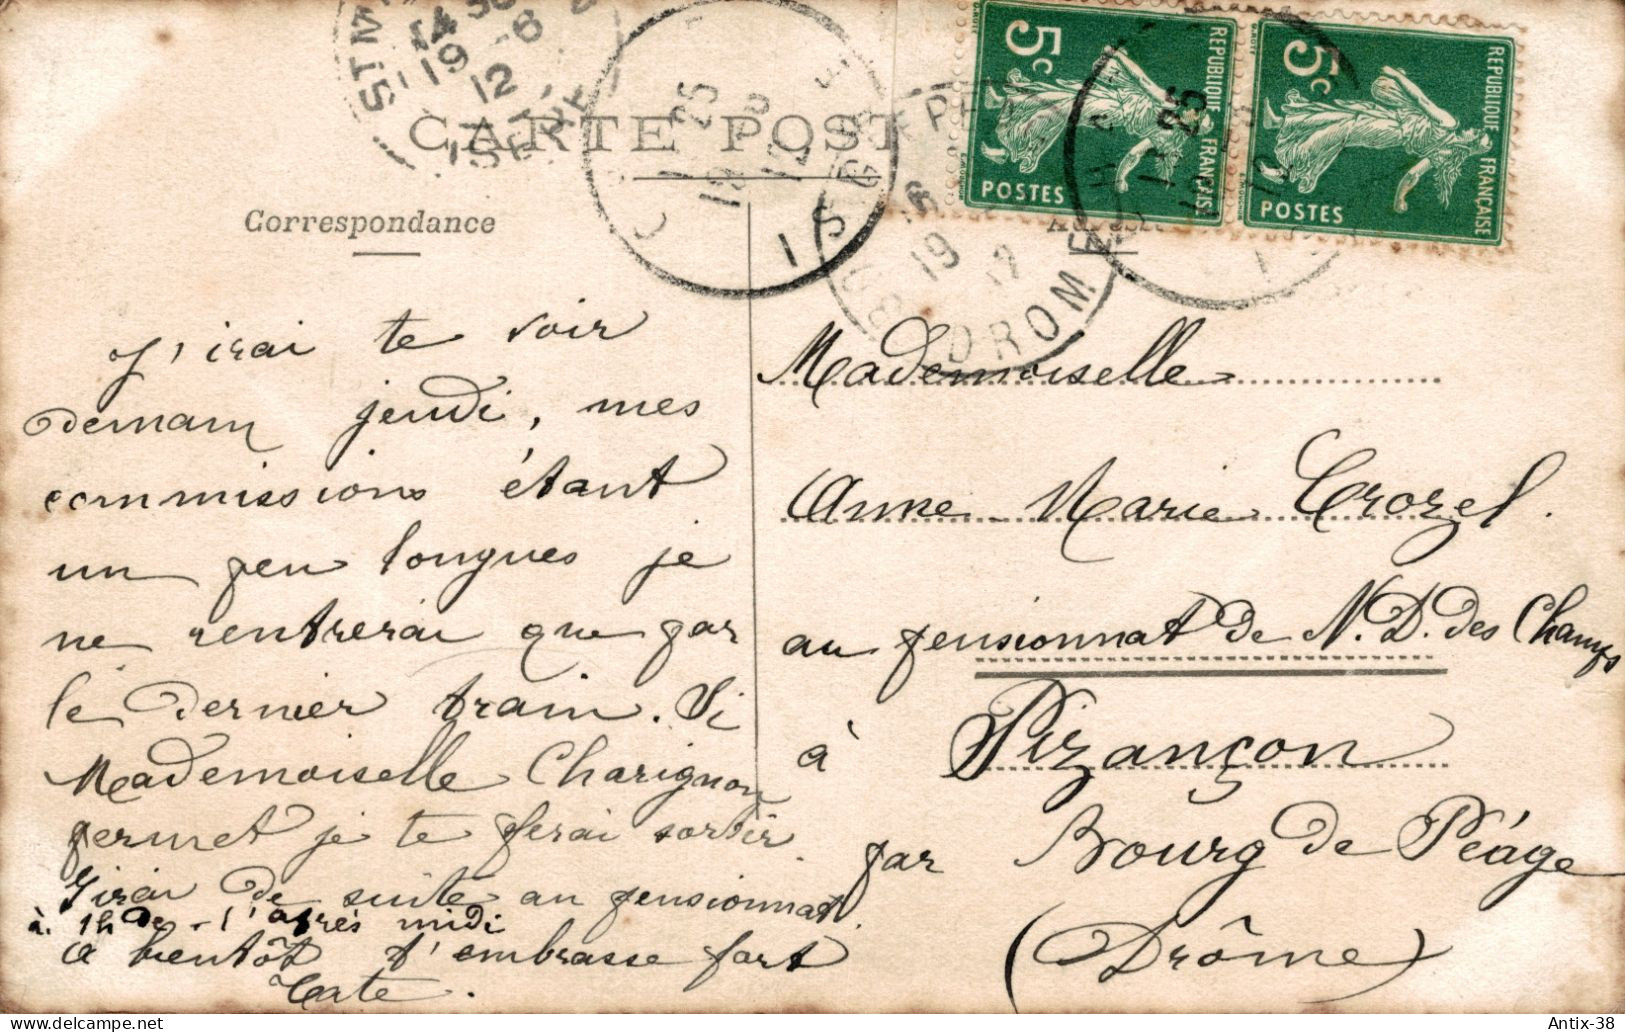 CARTE POST
Correspondance
J'irai te voir
demain jeudi, mes
commissions étant
un peu longues je
ne rentrerai que par
le dernier train. Si
Mademoiselle Charignon
permet je te ferai sortir.
J'irai de suite au pensionnat.
à 1h de l'après midi
à bientôt t'embrasse fort
Tate.
5c
REPUBLIQUE FRANÇAISE
POSTES
5c
REPUBLIQUE FRANÇAISE
POSTES
ISERE
19
12
ISERE
25
19
12
DROME
19
12
25
Mademoiselle
Anne-Marie Crozel.
au pensionnat de N.D. des Champs
à Pizançon
par Bourg de Péage
(Drôme)
Antix-38